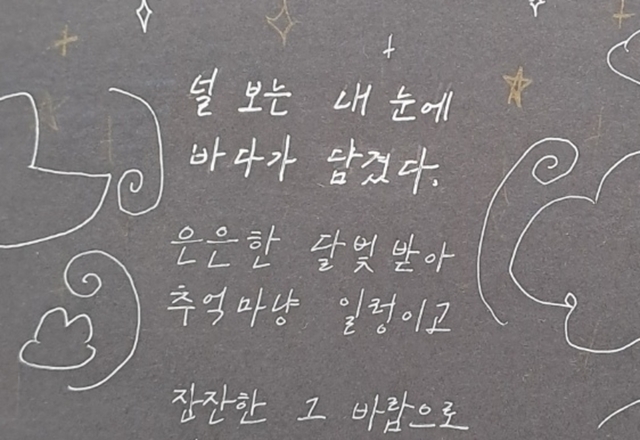 널 보는 내 눈에
바다가 담겼다.
은은한 달빛 받아
추억마냥 일렁이고
잠잔한 그 바람으로